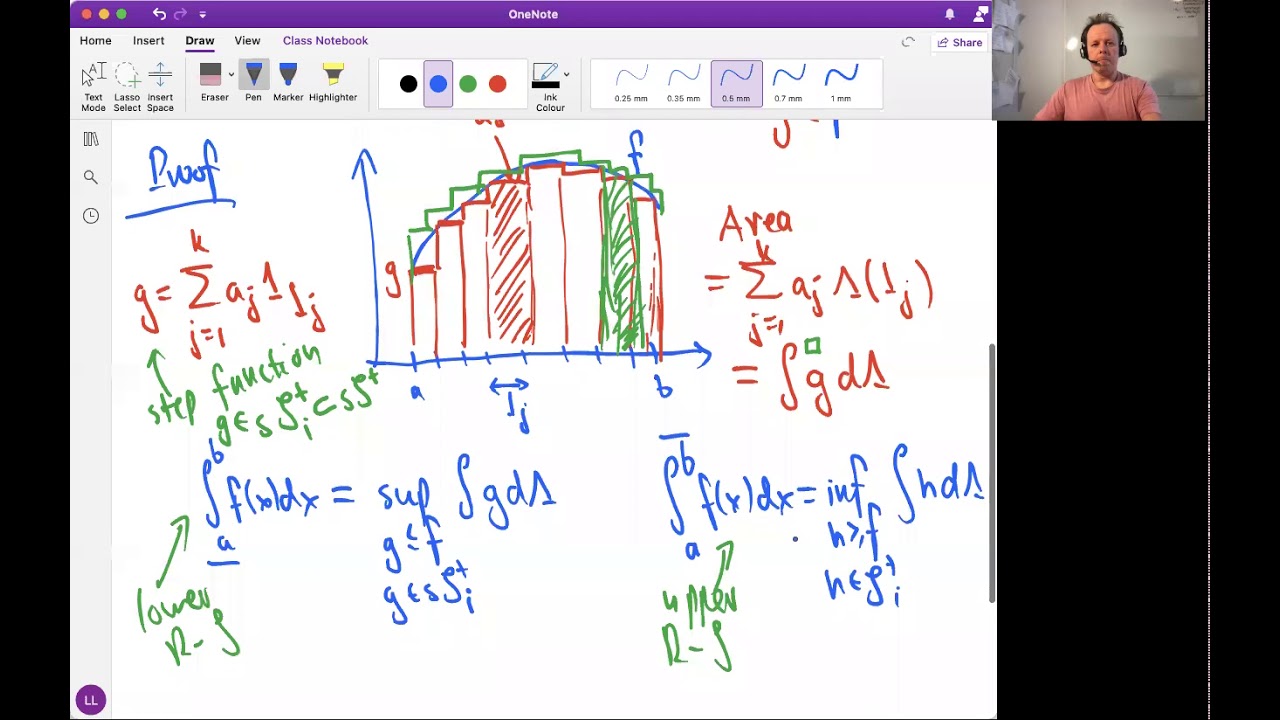 OneNote
Home Insert Draw View Class Notebook
Share
Text Mode
Lasso Select
Insert Space
Eraser
Pen
Marker
Highlighter
Ink Colour
0.25 mm 0.35 mm 0.5 mm 0.7 mm 1 mm
Proof
f
g
a
b
I_j
g = ∑_{j=1}^{k} a_j 1_{I_j}
step function
Area
= ∑_{j=1}^{k} a_j Λ(I_j)
= ∫ g dΛ
∫_a^b f(x)dx = sup ∫ g dΛ
g ≤ f
lower
∫_a^b f(x)dx = inf ∫ h dΛ
h ≥ f
upper
LL